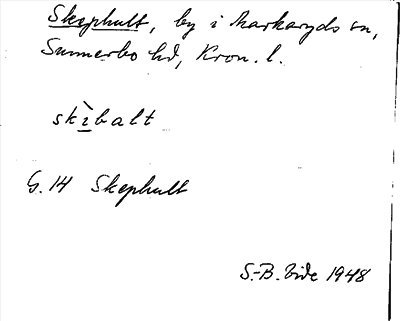 Skephult, by i Markaryds sn,
Sunnerbo hd, Kron. l.
skìbalt
G. 14 Skephult
S.-B. Vide 1948